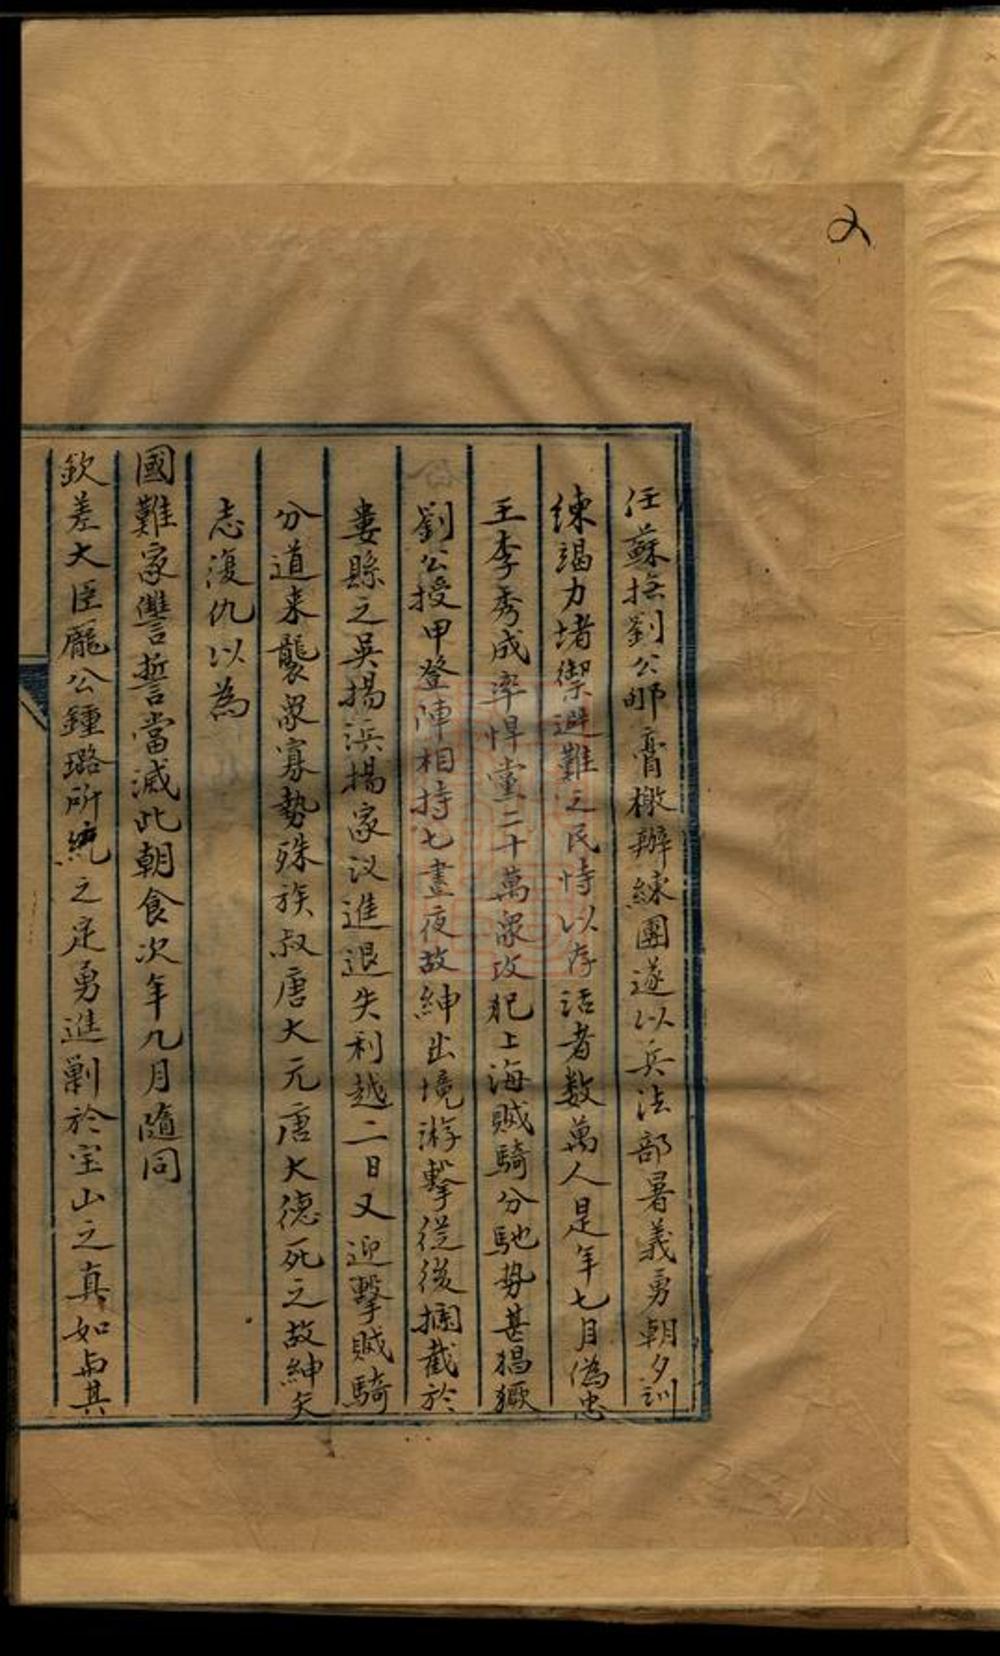 任蘇撫劉公郇膏檄辦練團遂以兵法部署義勇朝夕訓
練竭力堵禦避難之民恃以存活者数萬人是年七月偽忠
王李秀成率悍黨二十萬衆攻犯上海賊騎分馳勢甚猖獗
劉公授甲登陣相持七晝夜故紳出境游擊從後攔截於
婁縣之吳揚浜揚家汊進退失利越二日又迎擊賊騎
分道来襲衆寡勢殊族叔唐大元唐大德死之故紳矢
志復仇以為
國難家讐誓當滅此朝食次年九月隨同
欽差大臣龐公鍾璐所統之疋勇進剿於宝山之真如與其